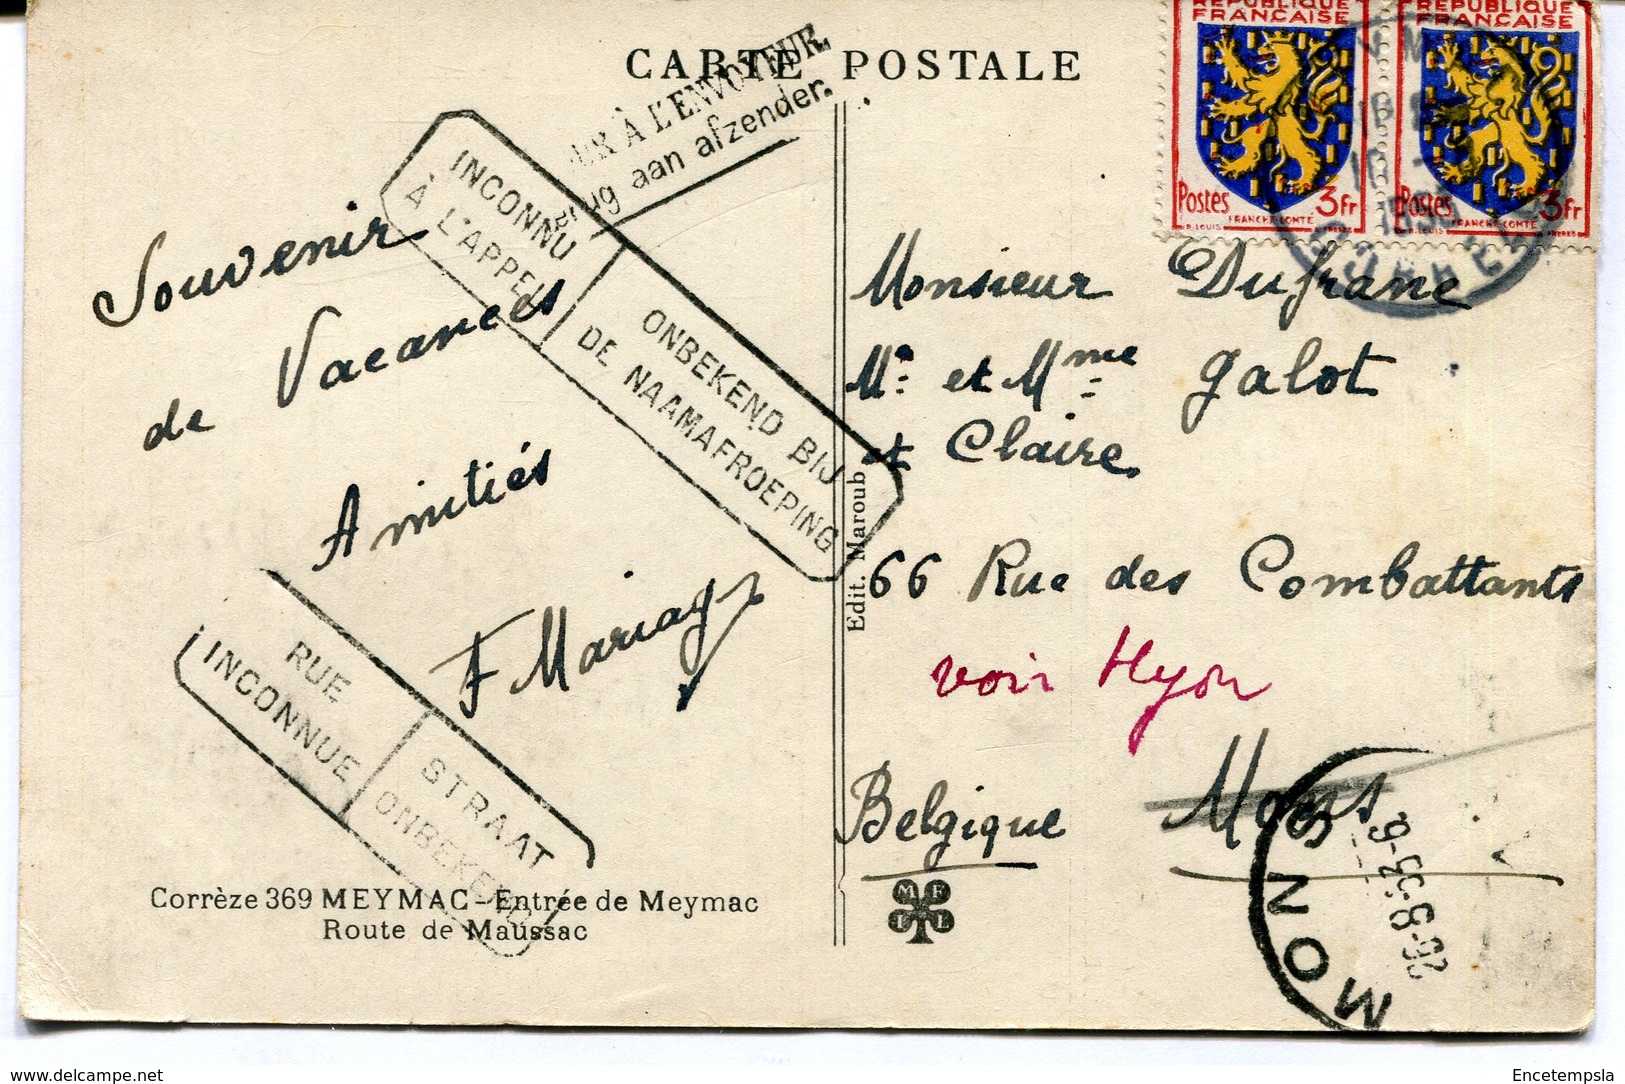 CARTE POSTALE
RÉPUBLIQUE FRANÇAISE
Postes 3fr
FRANCHE-COMTÉ
R. LOUIS
RÉPUBLIQUE FRANÇAISE
Postes 3fr
FRANCHE-COMTÉ
R. LOUIS
À L'ENVOYEUR
aan afzender.
INCONNU
À L'APPEL
ONBEKEND BIJ
DE NAAMAFROEPING
Souvenir
de Vacances
Amitiés
F Mariage
RUE
INCONNUE
STRAAT
ONBEKEND
Corrèze 369 MEYMAC - Entrée de Meymac
Route de Maussac
Edit. Maroub
Monsieur Dufrane
Mr et Mme Galot
et Claire
66 Rue des Combattants
voir Hyon
Belgique Mons
MONS
26-8-53-6
MEIL
delcampe.net
Encetempsla